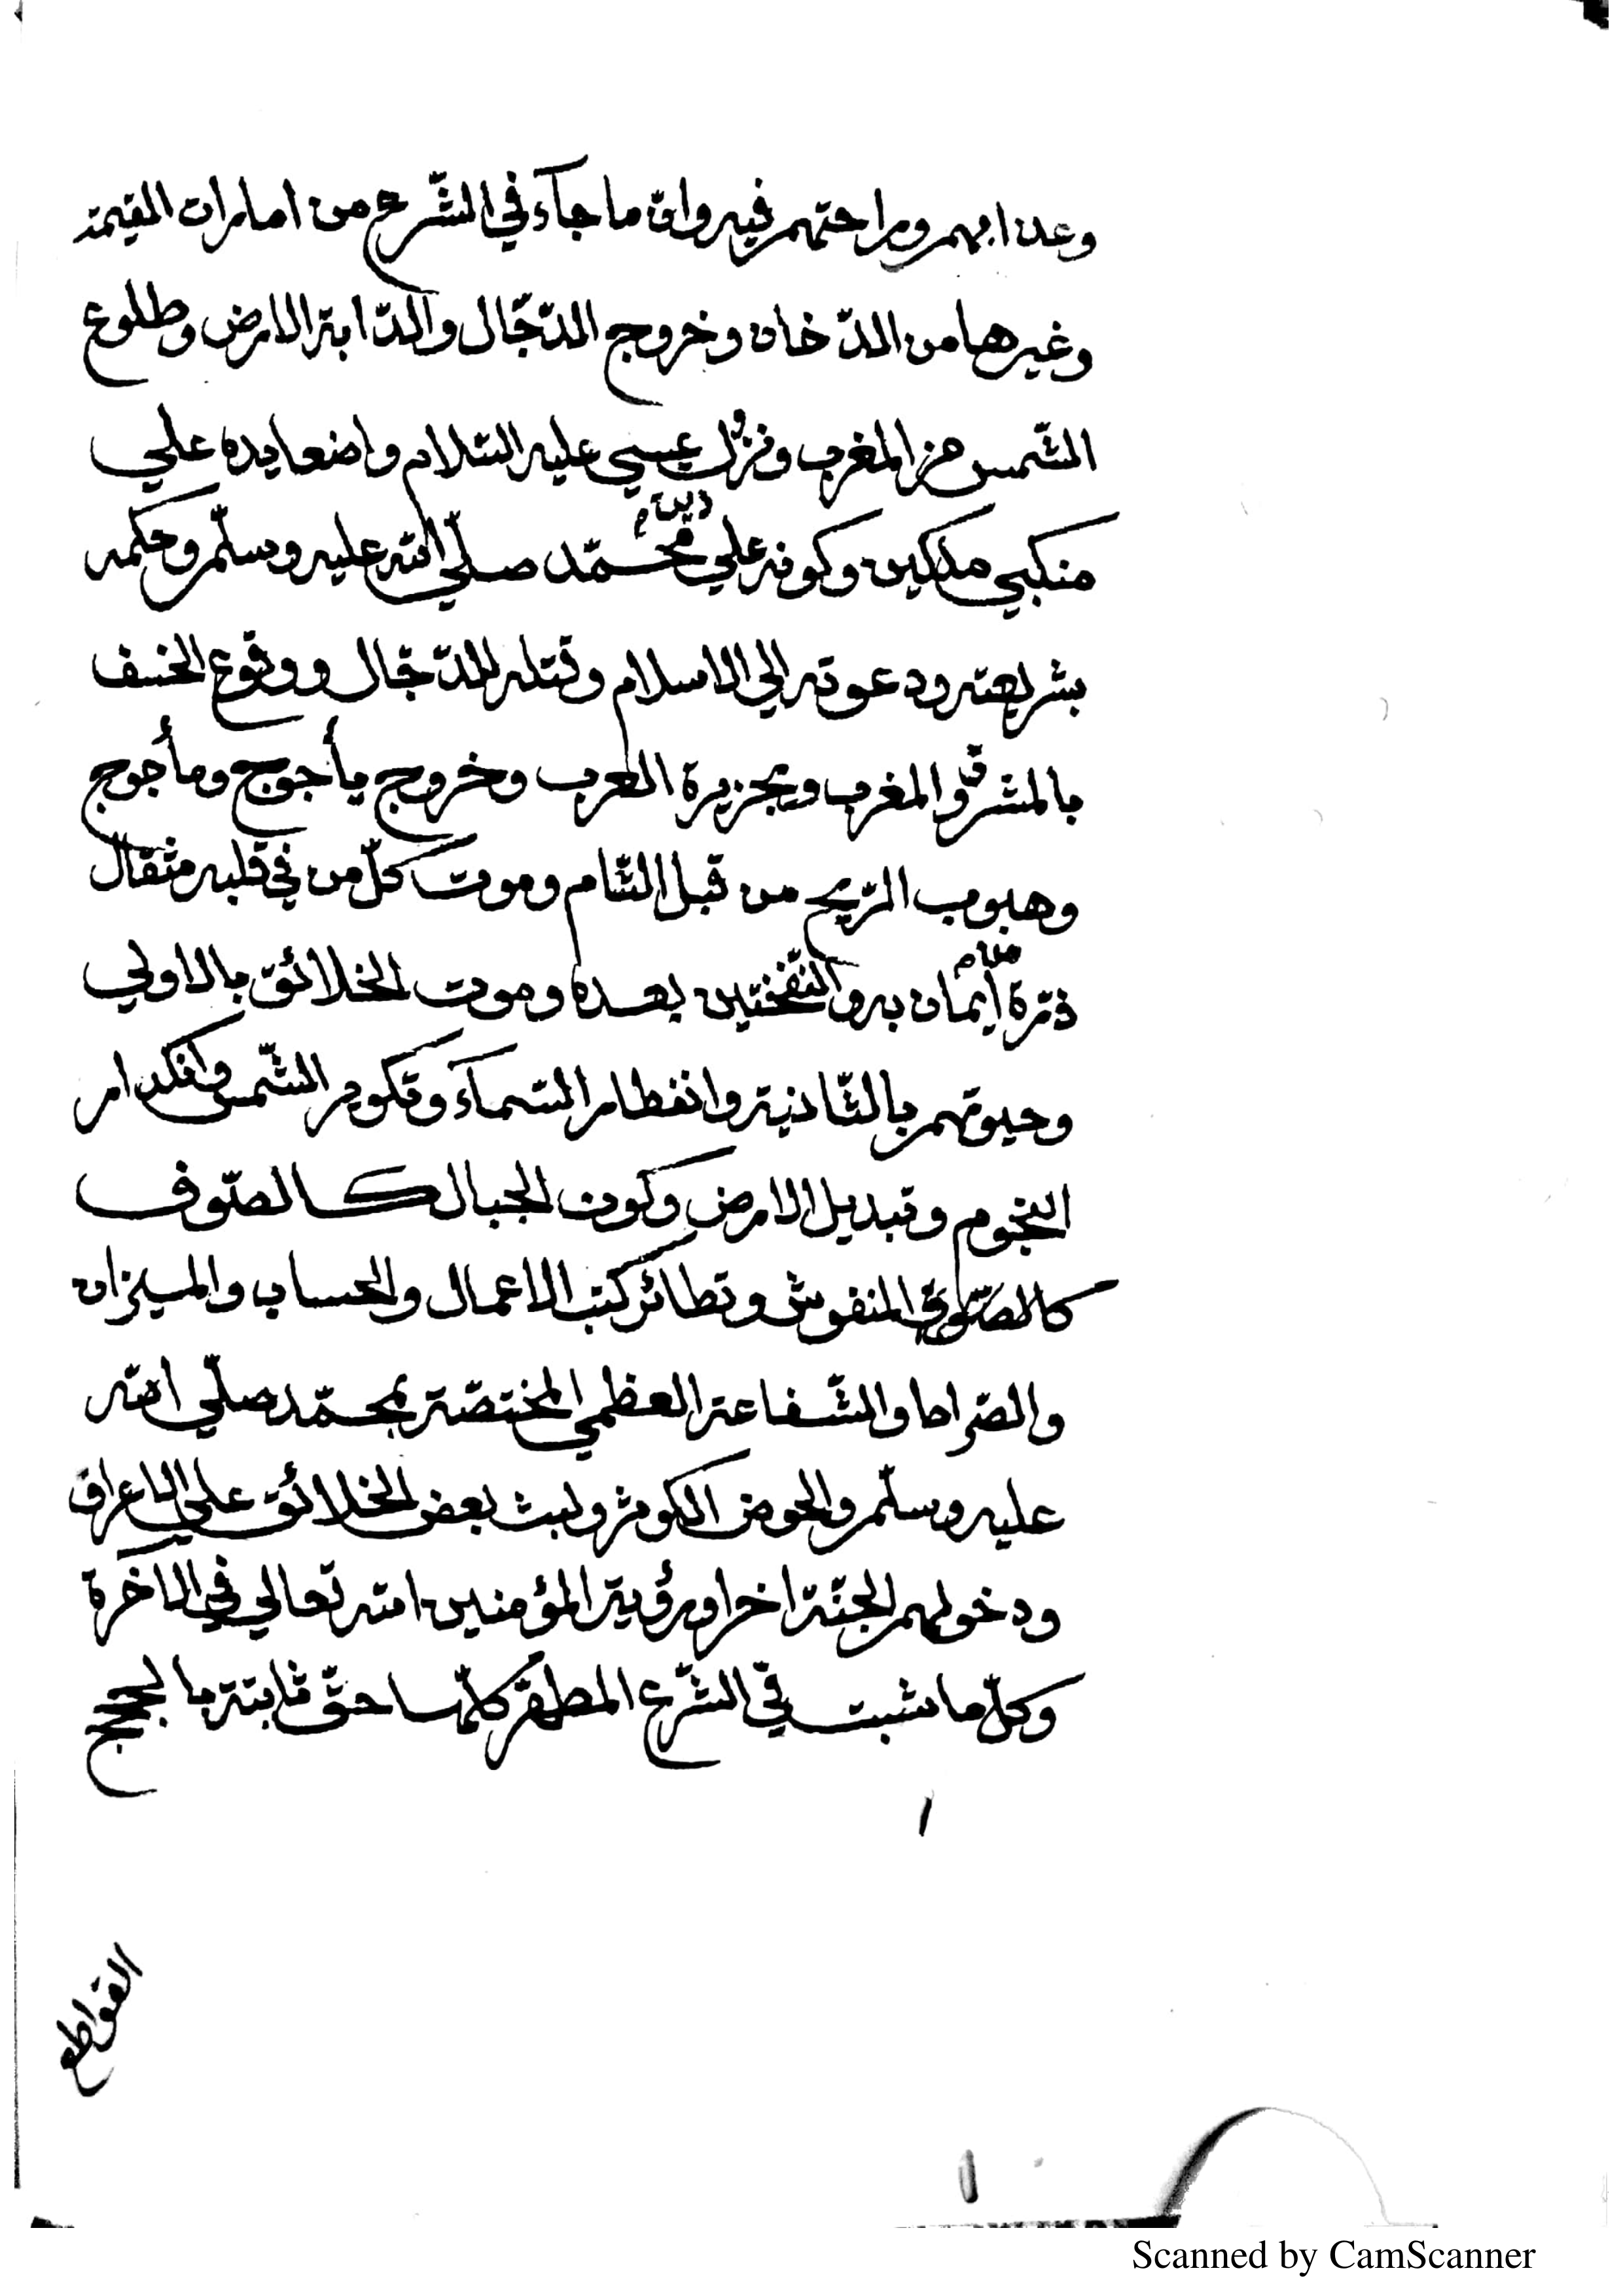 وعذابهم وراحتهم فيه وان ما جآء في الشّرع من امارات القيمة
وغيرها من الدّخان وخروج الدّجّال والدّابة الارض وطلوع
الشّمس من المغرب ونزول عيسي عليه السّلام واضعا يده علي
منكبي ملكين وكونه علي دين محمّد صلّي الله عليه وسلّم وحكمه
بشريعته ودعوته الي الاسلام وقتله الدّجّال ووقوع الخسف
بالمشرق والمغرب وبجزيرة العرب وخروج يأجوج ومأجوج
وهبوب الرّيح من قبل الشّام وموت كلّ من في قلبه مثقال
ذرّة ايمان به والنّفختين بعده وموت الخلائق بالاولي
وحيوتهم بالثّانية وانفطار السّمآء وتكوير الشّمس وانكدار
النّجوم وتبديل الارض وكون الجبال كالصّوف
كالصّوف المنفوش وتطائر كتب الاعمال والحساب والميزان
والصّراط والشّفاعة العظمي المختصّة بمحمّد صلّي الله
عليه وسلّم والحوض الكوثر ولبث بعض الخلائق علي الاعراف
ودخولهم الجنّة اخرا ورؤية المؤمنين الله تعالي في الآخرة
وكلّ ما ثبت في الشّرع المطهّر كلّها حقّ ثابتة بالحجج
القواطع
Scanned by CamScanner